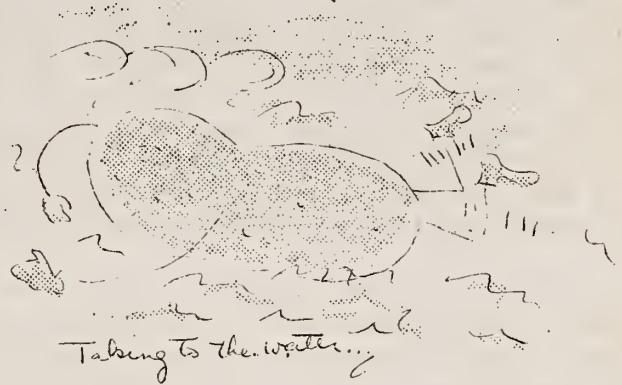 Taking to the water...